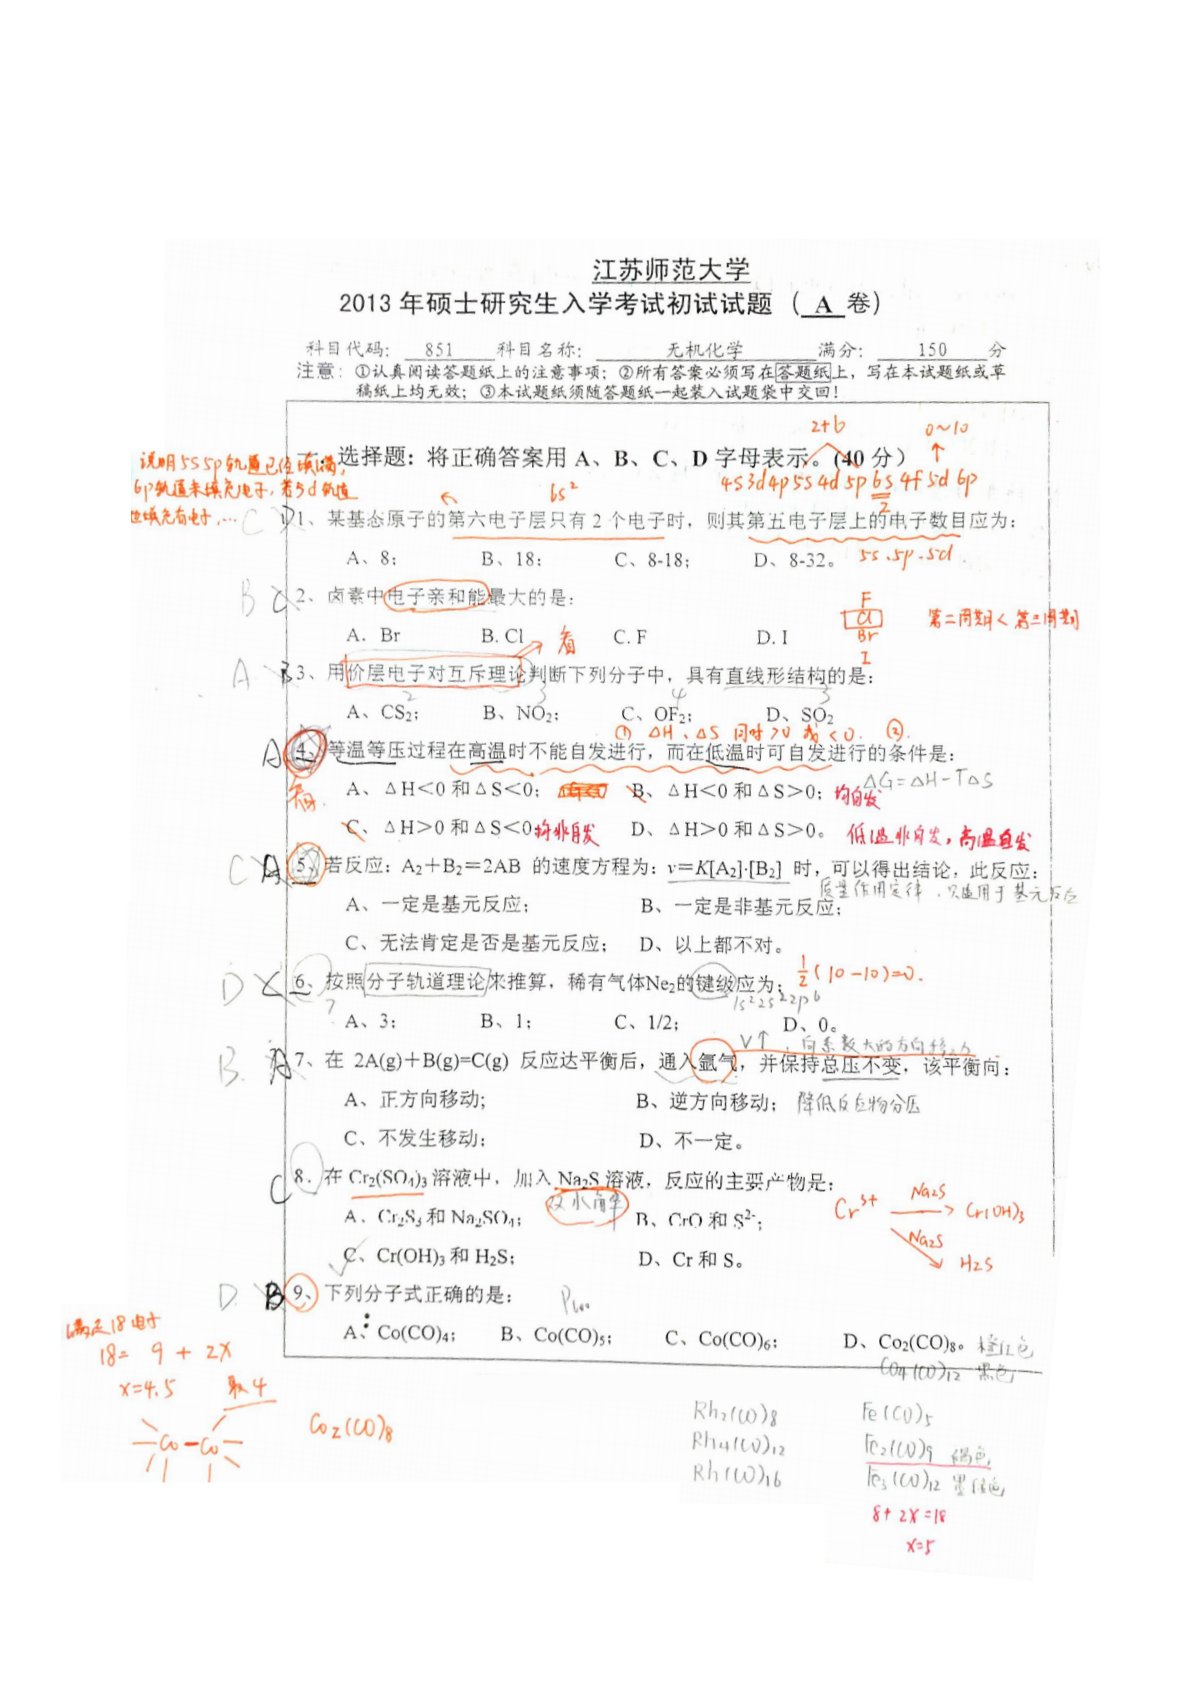 江苏师范大学
2013 年硕士研究生入学考试初试试题（ A 卷）
科目代码： 851 科目名称： 无机化学 满分： 150 分
注意：①认真阅读答题纸上的注意事项；②所有答案必须写在答题纸上，写在本试题纸或草
稿纸上均无效；③本试题纸须随答题纸一起装入试题袋中交回！
2+6 0~10
一、选择题：将正确答案用 A、B、C、D 字母表示。(40 分）
说明5s5p轨道已经填满，
6p轨道未填充电子，若5d轨道
也填充有电子，…
6s² 4s3d4p5s4d5p6s4f5d6p
2
C D 1、某基态原子的第六电子层只有 2 个电子时，则其第五电子层上的电子数目应为：
A、8； B、18； C、8-18； D、8-32。 5s.5p.5d
B C 2、卤素中电子亲和能最大的是：
A．Br B. Cl C. F D. I
F
Cl
Br
I
第二周期<第三周期
看
A B 3、用价层电子对互斥理论判断下列分子中，具有直线形结构的是：
2 3 4 3
A、CS₂； B、NO₂； C、OF₂； D、SO₂
① ΔH、ΔS 同时>0 或<0. ②.
A 4、等温等压过程在高温时不能自发进行，而在低温时可自发进行的条件是：
A、ΔH＜0 和ΔS＜0； B、ΔH＜0 和ΔS＞0；均自发 ΔG=ΔH-TΔS
C、ΔH＞0 和ΔS＜0 均非自发 D、ΔH＞0 和ΔS＞0。 低温非自发，高温自发
C A 5、若反应：A₂＋B₂＝2AB 的速度方程为：v＝K[A₂]·[B₂] 时，可以得出结论，此反应：
质量作用定律，只适用于基元反应
A、一定是基元反应； B、一定是非基元反应；
C、无法肯定是否是基元反应； D、以上都不对。
D C 6、按照分子轨道理论来推算，稀有气体Ne₂的键级应为： ½(10-10)=0.
1s²2s²2p⁶
A、3； B、1； C、1/2； D、0。
V↑，向系数大的方向移
B. A 7、在 2A(g)＋B(g)=C(g) 反应达平衡后，通入氩气，并保持总压不变，该平衡向：
A、正方向移动； B、逆方向移动； 降低反应物分压
C、不发生移动； D、不一定。
C 8．在 Cr₂(SO₄)₃ 溶液中，加入 Na₂S 溶液，反应的主要产物是：
双水解
A、Cr₂S₃ 和 Na₂SO₄； B、CrO 和 S²⁻；
C、Cr(OH)₃ 和 H₂S； D、Cr 和 S。
Cr³⁺ Na₂S Cr(OH)₃
Na₂S
H₂S
D. B 9、下列分子式正确的是：
A、Co(CO)₄； B、Co(CO)₅； C、Co(CO)₆； D、Co₂(CO)₈。 橙红色
Co₄(CO)₁₂ 黑色
满足18电子
18= 9 + 2x
x=4.5 取4
Co-Co
Co₂(CO)₈
Rh₂(CO)₈ Fe(CO)₅
Rh₄(CO)₁₂ Fe₂(CO)₉ 褐色
Rh(CO)₁₆ Fe₃(CO)₁₂ 墨绿色
8+2x=18
x=5